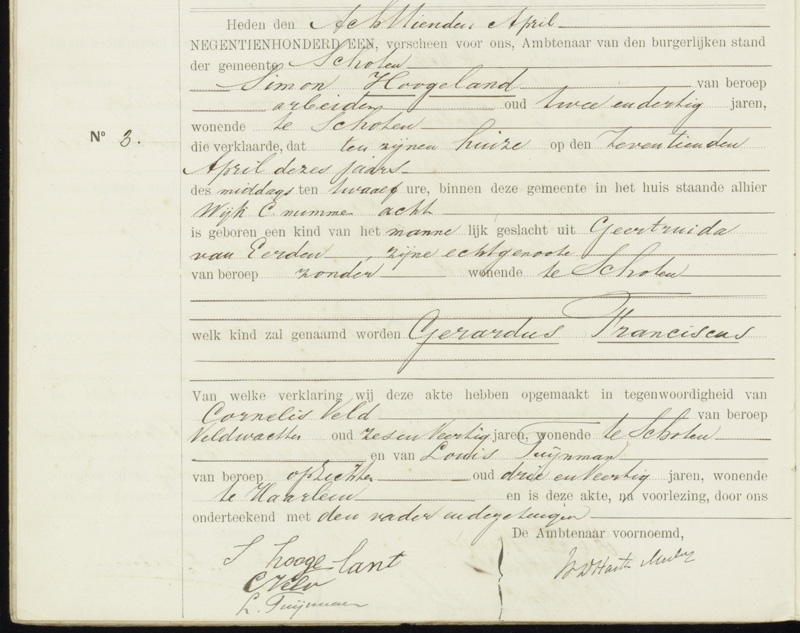 Heden den Achttienden April
NEGENTIENHONDERD EEN, verscheen voor ons, Ambtenaar van den burgerlijken stand
der gemeente Schoten
Simon Hoogeland van beroep
arbeider oud twee en dertig jaren,
wonende te Schoten
No 3.
die verklaarde, dat ten zijnen huize op den Zeventienden
April dezes jaars
des middags ten twaalf ure, binnen deze gemeente in het huis staande alhier
Wijk C nummer acht
is geboren een kind van het mannelijk geslacht uit Geertruida
van Eerden, zijne echtgenoote
van beroep zonder wonende te Schoten
welk kind zal genaamd worden Gerardus Franciscus
Van welke verklaring wij deze akte hebben opgemaakt in tegenwoordigheid van
Cornelis Veld van beroep
Veldwachter oud zes en veertig jaren, wonende te Schoten
en van Louis Tuijnman
van beroep opzichter oud drie en veertig jaren, wonende
te Haarlem en is deze akte, na voorlezing, door ons
onderteekend met den vader en de getuigen
De Ambtenaar voornoemd,
S hoogelant
C Veld
L. Tuijnman